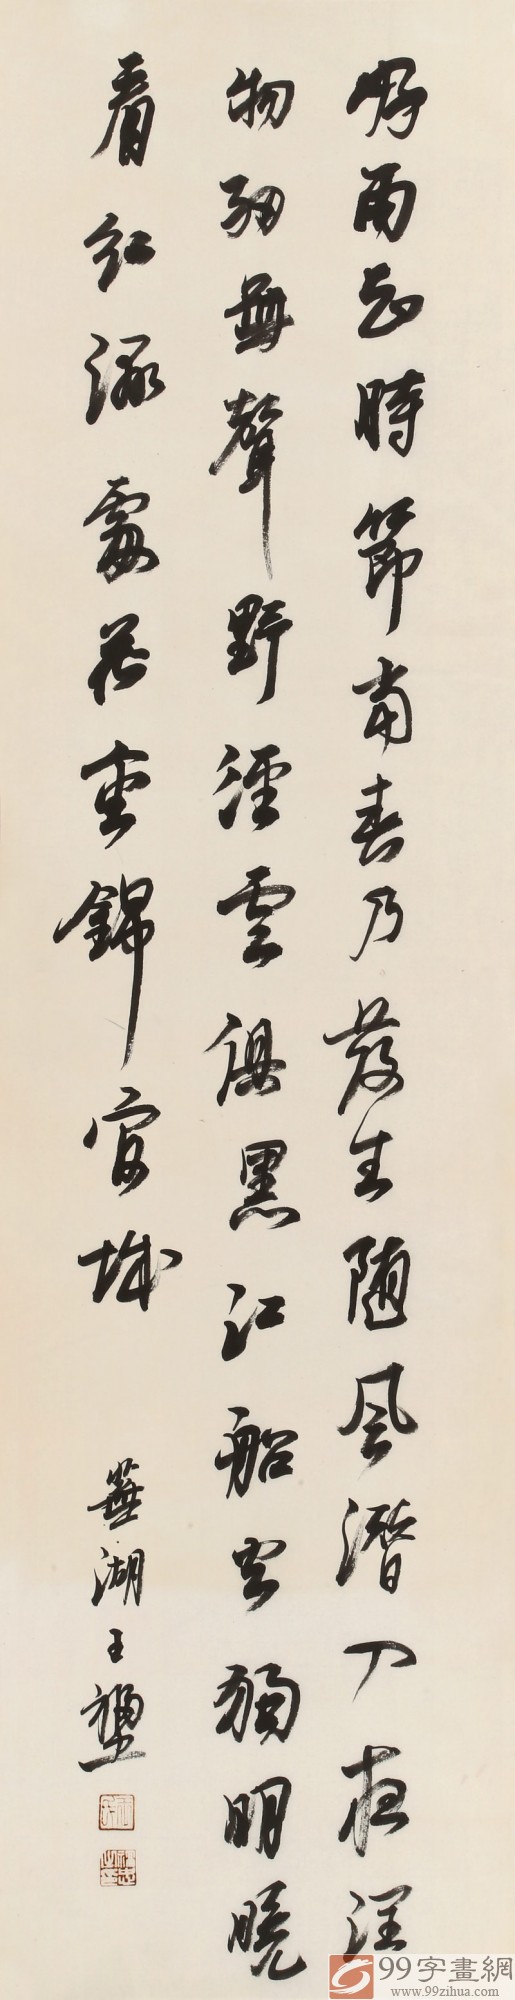 好雨知時節當春乃發生隨風潛入夜潤
物細無聲野徑雲俱黑江船火獨明曉
看紅濕處花重錦官城
蕪湖王
99字畫網
www.99zihua.com